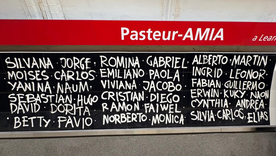 Pasteur-AMIA
a Lean
SILVANA · JORGE · ROMINA · GABRIEL · ALBERTO · MARTIN
MOISES · CARLOS · EMILIANO · PAOLA · INGRID · LEONOR
YANINA · NAUM · VIVIANA · JACOBO · FABIAN · GUILLERMO
SEBASTIAN · HUGO · CRISTIAN · DIEGO · ERWIN · KUKY · NAON
DAVID · DORITA · RAMON · FAIWEL · CYNTHIA · ANDREA
BETTY · FAVIO · NORBERTO · MONICA · SILVIA · CARLOS · ELIAS